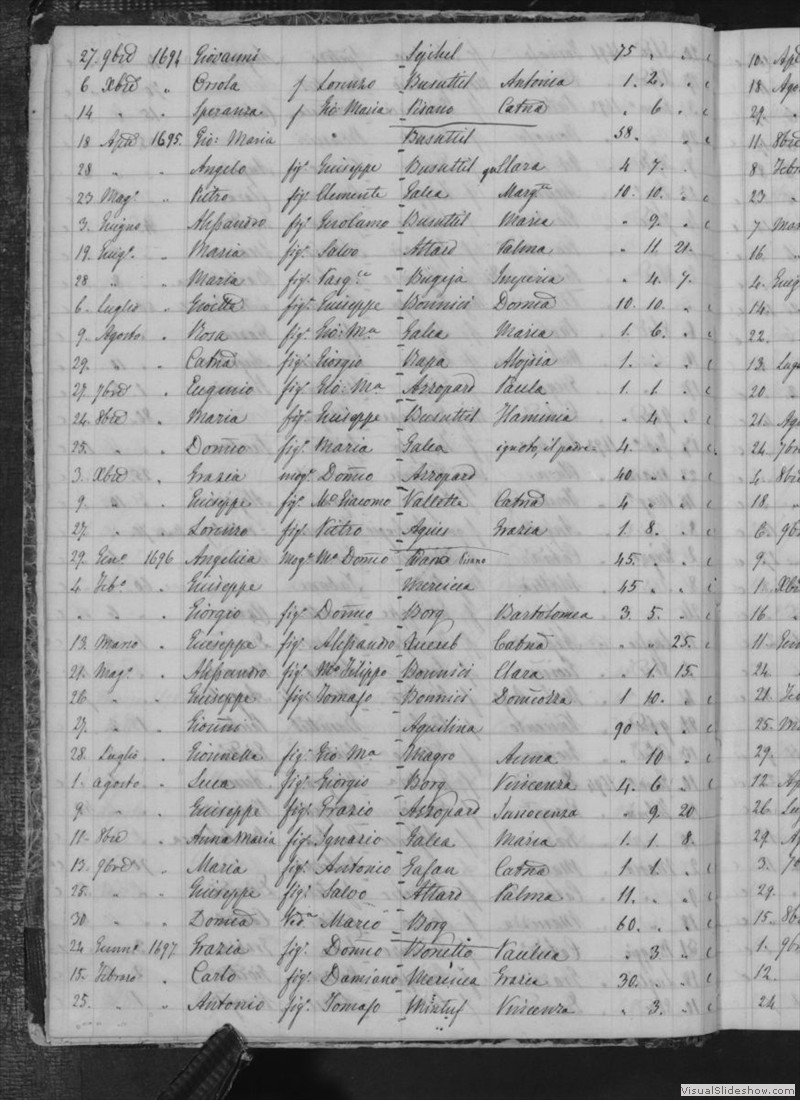 27. 9bre 1694 Giovanni Sejchel 75 " " c
6 Xbre " Orsola f Lorenzo Busuttil Antonia 1. 2. " c
14 " " Speranza f Gio Maria Pisano Catna " 6 " c
18 Aple 1695. Gio: Maria " Busuttil 58. " c
28 " " Angelo fig. Giuseppe Busuttil Clara 4 7. "
23 Magº " Pietro fig. Clemente Galea Margta 10. 10. " c
3. Giugno " Alessandro fig. Gerolamo Busuttil Maria " 9. " c
19. Giugº " Maria fig. Salvo Attard Palma " 11. 21.
28 " " Maria fig. Bugeja Imperia " 4. 7.
6. Luglio " Gioetta fig. Giuseppe Bonnici Domca 10. 10. " c
9. Agosto " Rosa fig. Gio: Ma Galea Maria 1. 6. " c
29. " " Catna fig. Giorgio Bapa Aloisia 1. " " c
27. 7bre " Eugenio fig. Gio: Ma Azzopard Paula 1. 1. " c
24. 8bre " Maria fig. Giuseppe Busuttil Flaminia " 4. " c
25. " " Domco fig. Maria Galea ignoto, il padre 4. " " c
3. Xbre " Grazia mogº Domco Azzopard 40 " " c
9 " " Giuseppe figº Mº Giacomo Vallotta Catna 4 " " c
27. " " Lorenzo fig. Pietro Agius Grazia 1 8. " c
29. Genº 1696 Angelica Mogº Mº Domco Pisano 45. " " c
4. Febº " Giuseppe Mercieca 45 " " c
" " " Giorgio fig. Domco Borg Bartolomea 3. 5. " c
13. Marzo " Giuseppa fig. Alessandro Xuereb Catna " " 25. c
21. Magº " Alessandro fig. Mº Filippo Bonnici Clara " 1. 15.
26. " " Giuseppe fig. Tomaso Bonnici 1 10. " c
27. " " Gionni Aquilina 90 " " c
28. Luglio " Gionnella fig. Gio Ma Magro Anna " 10 " c
1. agosto " Luca fig. Giorgio Borg Vincenza 4. 6 " c
9. " " Giuseppe fig. Grazio Azzopard Innocenza " 9. 20
11. 8bre " Anna Maria fig. Ignazio Galea Maria 1. 1. 8. c
13. 9bre " Maria fig. Antonio Gafan Catna 1 1. " c
25. " " Giuseppe fig. Salvo Attard Palma 11. " " c
30 " " Domca Veda Mario Borg 60. " " c
24 Gennº 1697 Grazia fig. Domco Bonello Paulica " 3 " c
15. Febraro " Carlo fig. Damiano Mercieca Grazia 30. " " c
25. " " Antonio fig. Tomaso Mintuf Vincenza " 3. " c
10. Aple
18 Ago
29. "
11 8bre
8 Febra
23 "
7 Mar
16. "
4. Giug
14. "
22. "
13. Lug
20. "
21. Ag
24. 7bre
4. 8bre
18. "
6. 9b
9. "
1. Xbre
16. "
11. Gen
24. "
21. Fe
25. Ma
29. "
12 Ago
26. Lu
29. A
3.
29. "
15. 8b
1. 9b
12. "
24 "
VisualSlideshow.com